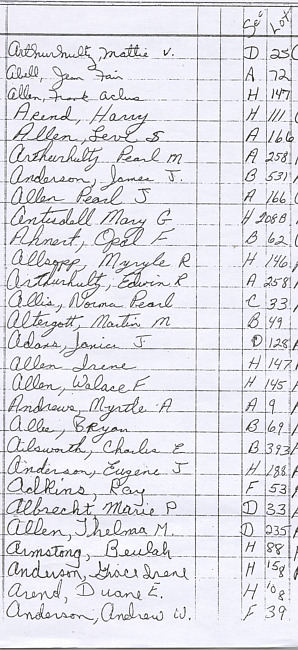 Sec Lot
Arthurhultz, Mattie V. D 25
Abell, Jean Fair A 72
Allen, Frank Arlus H 147
Arend, Harry H 111
Allen, Levi S A 166
Arthurhultz Pearl M A 258
Anderson, James J. B 531
Allen Pearl J A 166
Antisdell Mary G H 208B
Ahnert, Opal F B 62
Allsopp, Myryle R H 146
Arthurhultz, Edwin R A 258
Allis, Norma Pearl C 33
Altergott, Martin M B 49
Adams, Janice J D 128
Allen Irene H 147
Allen, Walace F H 145
Andrews, Myrtle A A 9
Albe, Bryan B 69
Ailsworth, Charles E B 393
Anderson, Eugene J H 188
Adkins, Ray F 53
Albrecht Marie P D 33
Allen, Thelma M. D 235
Armstong, Beulah H 88
Anderson, Grace Irene H 158
Arend, Duane E. H 108
Anderson, Andrew W. F 39